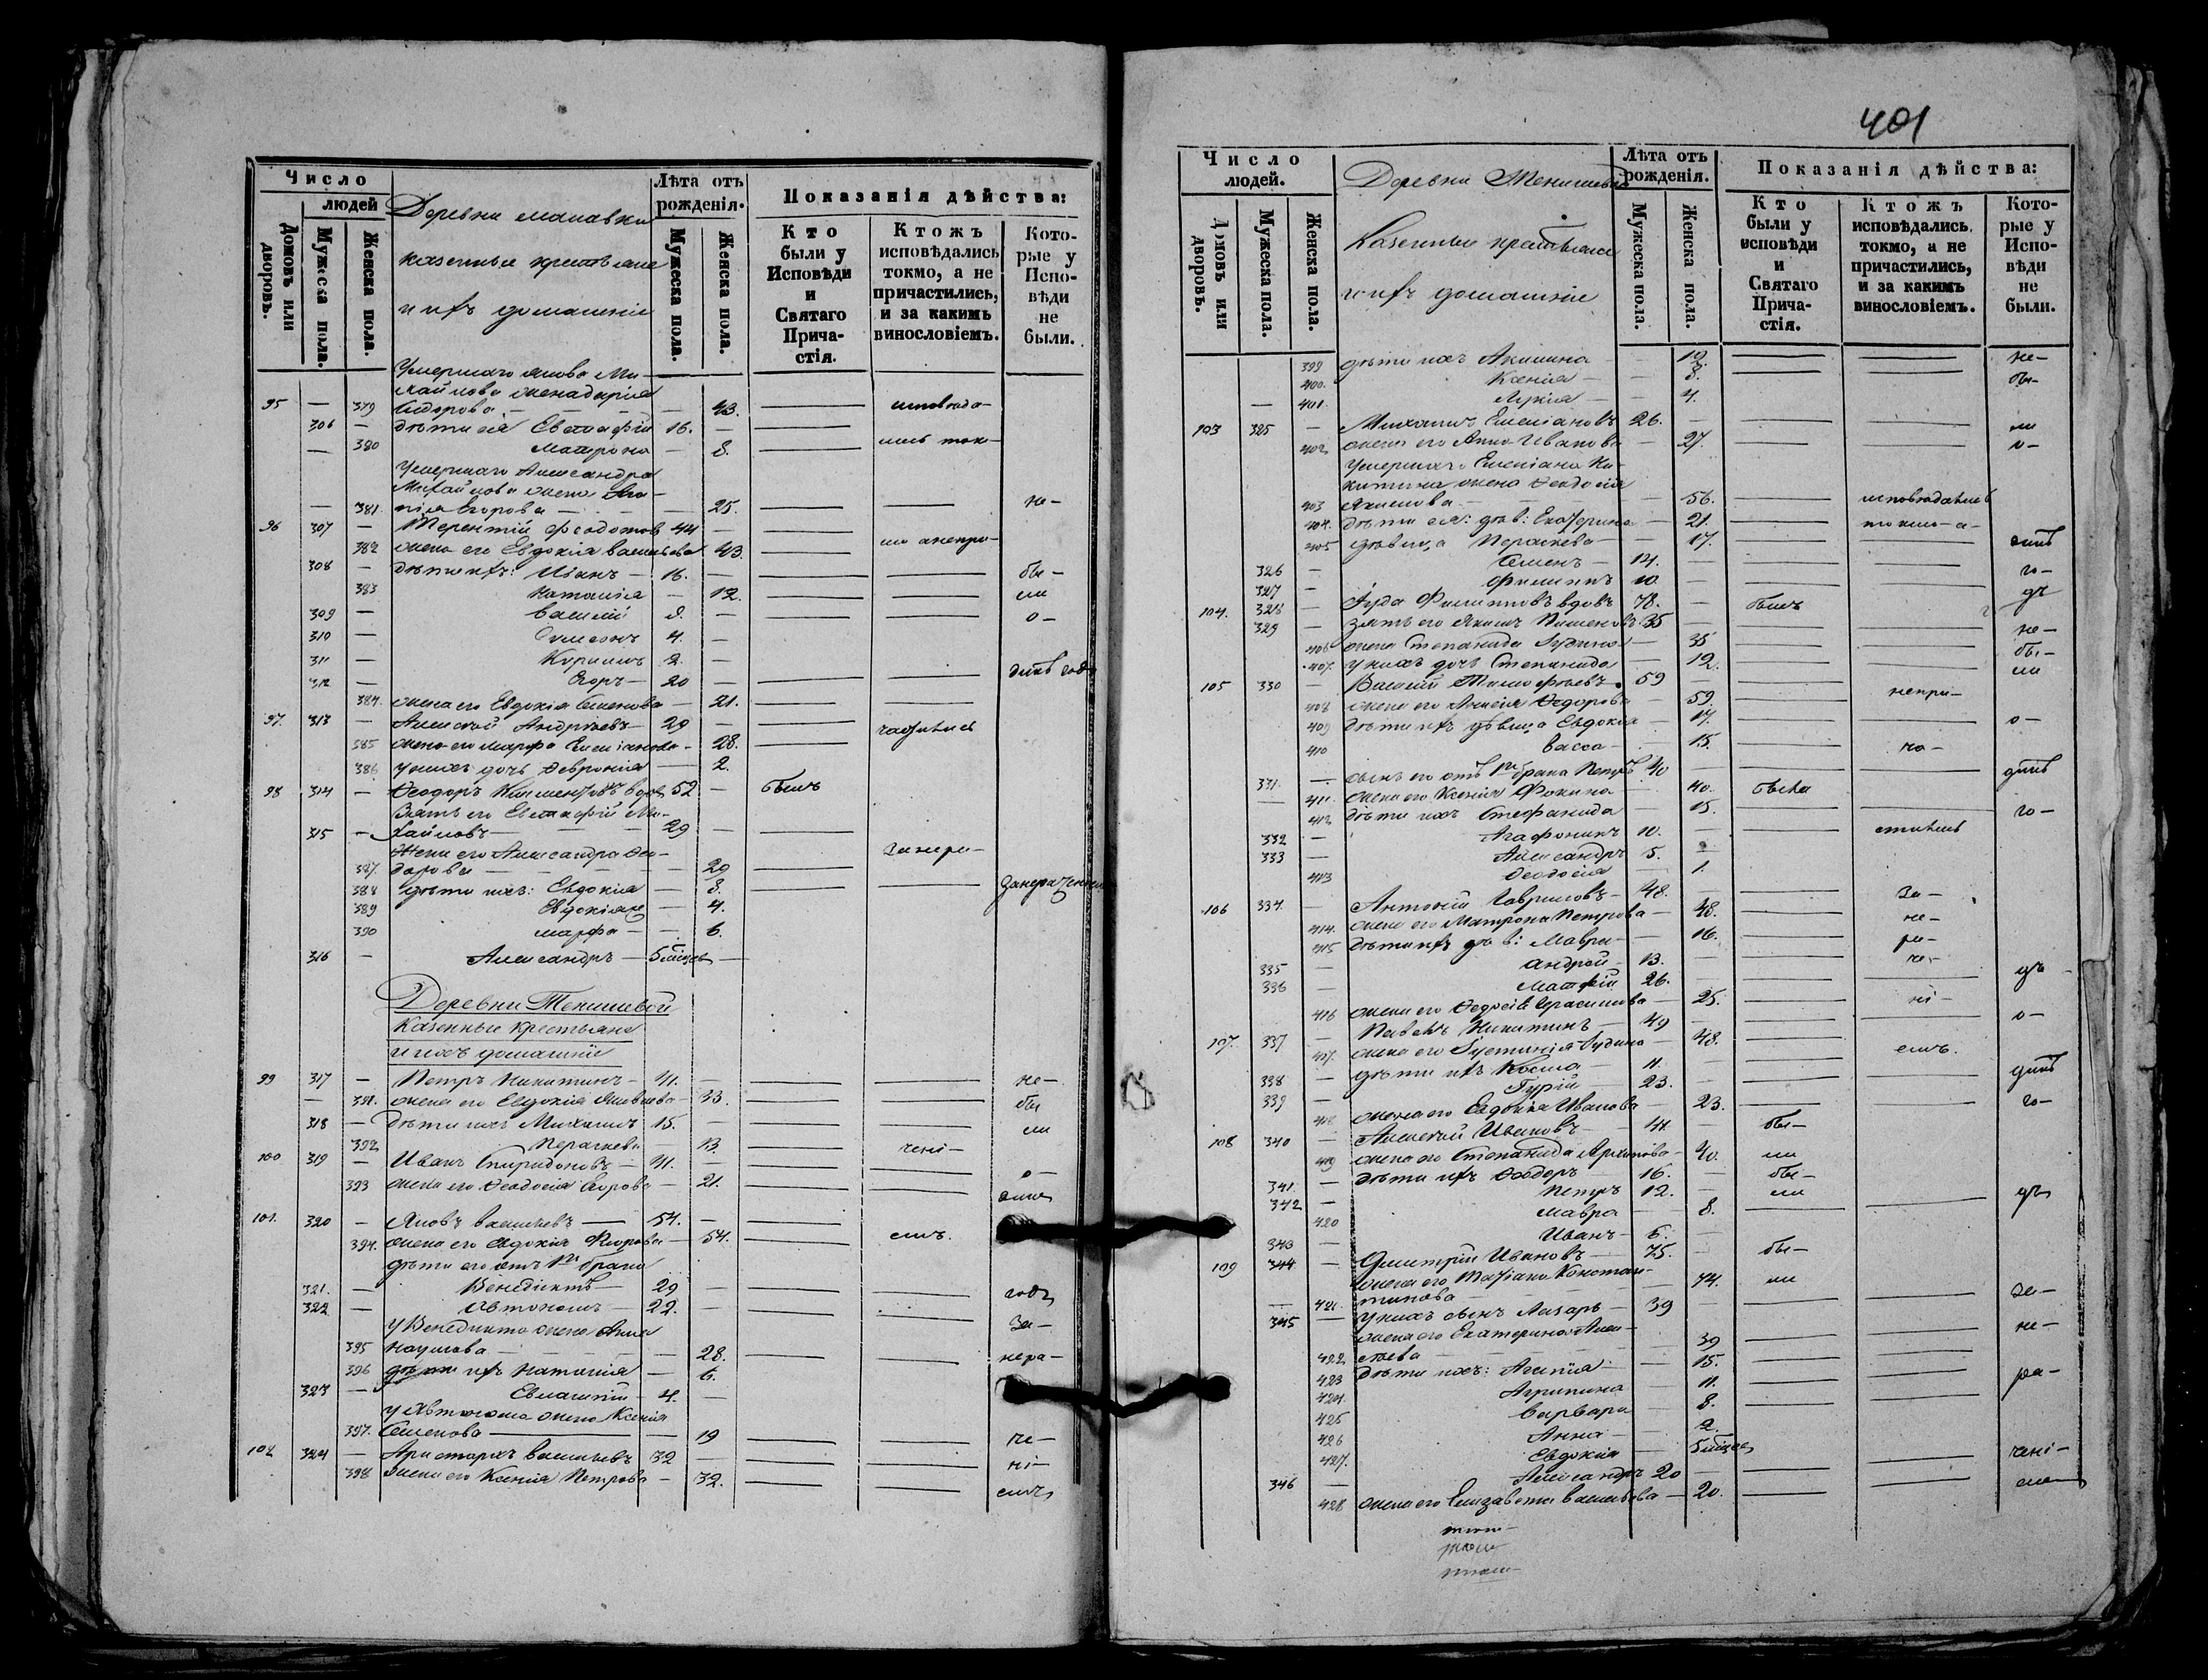 Число
людей
Домовъ или дворовъ.
Мужеска пола.
Женска пола.
Деревни
казенные крестьяне
и ихъ домашніе
Лѣта отъ рожденія.
Мужеска пола.
Женска пола.
Показанія дѣйства:
Кто были у Исповѣди и Святаго Причастія.
Ктожъ исповѣдались токмо, а не причастились, и за какимъ винословіемъ.
Которые у Исповѣди не были.
Умершаго Якова Ми-
хайлова жена Дарья
95 — 379 Сидорова — 43. исповѣда-
306 — дѣти ея Евстафій 16. —
— 380 Матрона — 8. лись ток-
Умершаго Александра
Михайлова жена Ага-
— 381. пія Егорова — 25. не-
96 307 — Терентій Ѳеодотовъ 44 —
382 жена его Евдокія Васильева 43. мо анепри-
308 — дѣти ихъ: Иванъ — 16. — бы-
383 Наталія — 12. ли
309 — Василій 8. — о-
310 — Симеонъ 4. —
311 — Кириллъ 2. —
312 — Егоръ — 20 — динъ годъ
384. жена его Евдокія Семенова — 21.
97. 313 — Алексѣй Андреевъ — 29 — частились
385 жена его Марфа Емеліанова — 28.
386 у нихъ дочь Ѳевронія — 2.
98 314 — Ѳеодоръ Климентовъ вдовъ 52 — былъ
Зять его Евстафій Ми-
315 — хайловъ — 29 —
Жена его Александра Ѳео- за нера-
387. дорова — 29
388 дѣти ихъ: Евдокія — 8. за нераченіемъ
389 Евдокія же — 4.
390 Марфа — 6.
316 — Александръ — 5 мѣсяц. —
Деревни Тенишевой
казенные крестьяне
и ихъ домашніе
99 317 — Петръ Никитинъ — 41. — не-
— 391. жена его Евдокія Яковлева — 33. бы
318 — дѣти ихъ Михаилъ 15. — ли
392 Параскева 13. чені-
100 319 — Иванъ Спиридоновъ — 41. — о-
393 жена его Ѳеодосія Егорова — 21. динъ
101. 320 — Яковъ Васильевъ — 54. —
394. жена его Евдокія Флорова — 54. емъ.
дѣти его отъ 1го брака
321. — Венедиктъ — 29 — годъ
322 — Автономъ — 22. —
У Венедикта жена Анна за-
395 Наумова — 28. нера-
396 дѣти ихъ Наталія — 6.
323 — Евлампій — 4. —
у Автонома жена Ксенія
397. Семенова — 19 че-
102 324 — Аристархъ Васильевъ 32 — ні-
398 жена его Ксенія Петрова — 32. емъ
401
Число
людей.
Домовъ или дворовъ.
Мужеска пола.
Женска пола.
Деревни Тенишевой
Казенные крестьяне
и ихъ домашніе
Лѣта отъ рожденія.
Мужеска пола.
Женска пола.
Показанія дѣйства:
Кто были у исповѣди и Святаго Причастія.
Ктожъ исповѣдались токмо, а не причастились, и за какимъ винословіемъ.
Которые у Исповѣди не были.
399 дѣти ихъ Акилина — 10. не-
400. Ксенія — — 8. бы-
— 401. Лукія — — 4.
103 325 — Михаилъ Емеліановъ 26. ли
402 жена его Анна Иванова — 27. о-
Умершаго Емеліана Ни-
китина жена Ѳеодосія
403 Якимова — 56. исповѣдались
404. дѣти ея: дѣв: Екатерина — 21. токмо-а-
405 дѣвица Параскева — 17. динъ
326 — Семенъ — 14. — го-
327 — Филиппъ 10. — дъ
104. 328 — Іуда Филипповъ вдовъ 78. — былъ
329 — зять его Якимъ Пименовъ 35 — не-
406 жена Степанида Іудина — 35 бы-
407. у нихъ дочь Степанида — 12. ли
105 330 — Василій Тимофѣевъ 59 — непри-
408 жена его Анисія Ѳедорова — 59.
409 дѣти ихъ дѣвица Евдокія — 17. о-
410 Васса — 15. ча-
331. — сынъ его отъ 1го брака Петръ 40 — динъ
— 411. жена его Ксенія Фокина 40. была
412 дѣти ихъ Стефанида 15. го-
332 — Агафоникъ 10. — стились
333 — Александръ 5. —
413 Ѳеодосія — 1.
106 334. — Антоній Гавриловъ — 48. — за-
414. жена его Матрона Петрова — 48. не-
415 дѣти ихъ дѣв: Мавра — 16. ра-
335 — Андрей — 13. — че-
336 — Матѳій 26. дъ
416 жена его Ѳедосія Герасимова — 25. ні-
107. 337 — Павелъ Никитинъ — 49 — о-
417. жена его Іустинія Іудина — 48. емъ.
338 — дѣти ихъ Косма — 11. — динъ
339 — Гурій — 23. — го-
418 жена его Евдокія Иванова 23.
108 340 — Алексѣй Ивановъ — 41. — бы-
419 жена его Степанида Архипова — 40. ли
341 — дѣти ихъ Ѳеодоръ 16. — бы-
342 — Петръ 12. — ли дъ
420 Мавра — 8.
343 — Иванъ — 6. —
109 344 — Димитрій Ивановъ — 75. — бы-
жена его Татіана Констан-
— 421. тинова — 74. ли
345 — у нихъ сынъ Лазарь — 39 — за-
жена его Екатерина Алек-
422. сѣева — 39 не-
423 дѣти ихъ: Агапія — 15.
424. Агрипина — 11. ра-
425 Варвара — 8.
426 Анна — 2.
427. Евдокія — 5 мѣсяц.
346 — Александръ 20 — чені-
428 жена его Елизавета Васильева — 20. емъ